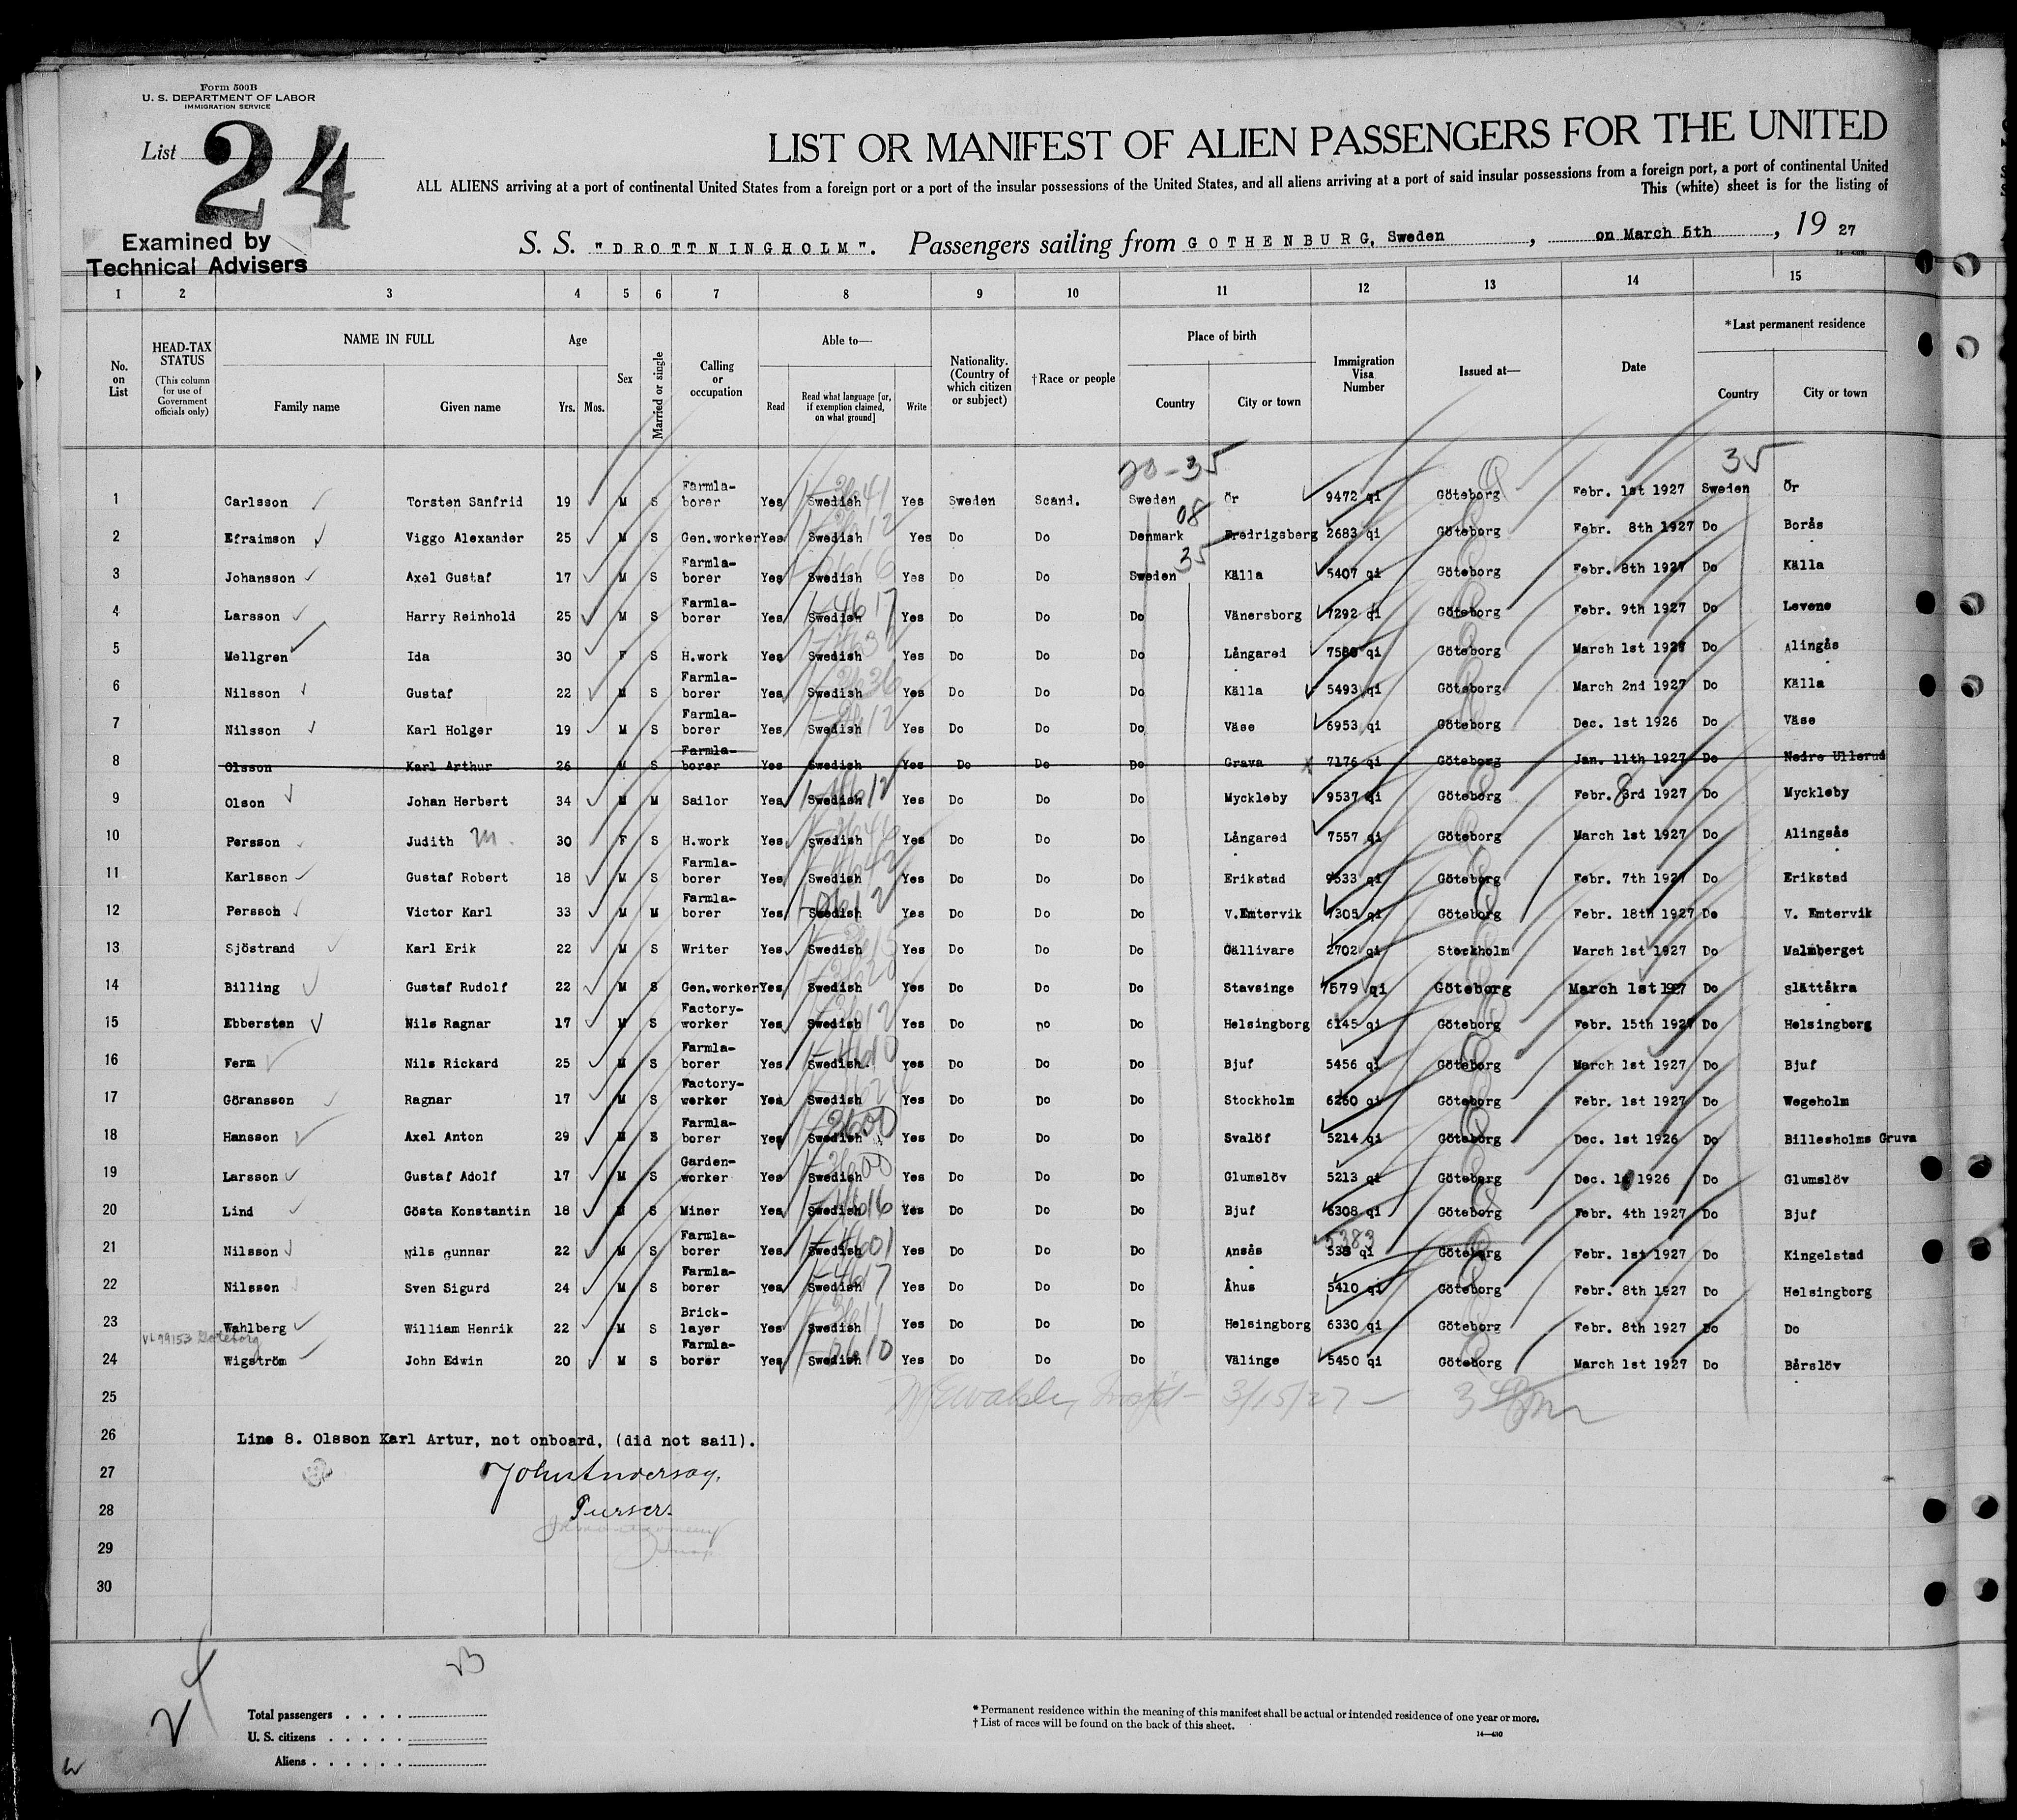 Form 500B
U. S. DEPARTMENT OF LABOR
IMMIGRATION SERVICE
List 24
LIST OR MANIFEST OF ALIEN PASSENGERS FOR THE UNITED
ALL ALIENS arriving at a port of continental United States from a foreign port or a port of the insular possessions of the United States, and all aliens arriving at a port of said insular possessions from a foreign port, a port of continental United
This (white) sheet is for the listing of
Examined by
Technical Advisers
S. S. "DROTTNINGHOLM". Passengers sailing from GOTHENBURG, Sweden, on March 5th, 19 27
1 2 3 4 5 6 7 8 9 10 11 12 13 14 15
No. on List
HEAD-TAX STATUS (This column for use of Government officials only)
NAME IN FULL Family name Given name
Age Yrs. Mos.
Sex
Married or single
Calling or occupation
Able to— Read Read what language [or, if exemption claimed, on what ground] Write
Nationality. (Country of which citizen or subject)
†Race or people
Place of birth Country City or town
Immigration Visa Number
Issued at—
Date
*Last permanent residence Country City or town
20-35 35
1 Carlsson Torsten Sanfrid 19 M S Farmla-borer Yes Swedish Yes Sweden Scand. Sweden Ör 9472 qi Göteborg Febr. 1st 1927 Sweden Ör
08
2 Efraimson Viggo Alexander 25 M S Gen.worker Yes Swedish Yes Do Do Denmark Fredrigsberg 2683 qi Göteborg Febr. 8th 1927 Do Borås
35
3 Johansson Axel Gustaf 17 M S Farmla-borer Yes Swedish Yes Do Do Sweden Källa 5407 qi Göteborg Febr. 8th 1927 Do Källa
4 Larsson Harry Reinhold 25 M S Farmla-borer Yes Swedish Yes Do Do Do Vänersborg 7292 qi Göteborg Febr. 9th 1927 Do Levene
5 Mellgren Ida 30 F S H.work Yes Swedish Yes Do Do Do Långared qi Göteborg March 1st 1927 Do Alingås
6 Nilsson Gustaf 22 M S Farmla-borer Yes Swedish Yes Do Do Do Källa 5493 qi Göteborg March 2nd 1927 Do Källa
7 Nilsson Karl Holger 19 M S Farmla-borer Yes Swedish Yes Do Do Do Väse 6953 qi Göteborg Dec. 1st 1926 Do Väse
8 Olsson Karl Arthur 26 M S Farmla-borer Yes Swedish Yes Do Do Do Grava 7176 qi Göteborg Jan. 11th 1927 Do Nedre Ullerud
9 Olson Johan Herbert 34 M M Sailor Yes Swedish Yes Do Do Do Myckleby 9537 qi Göteborg Febr. 3rd 1927 Do Myckleby
10 Persson Judith M. 30 F S H.work Yes Swedish Yes Do Do Do Långared 7557 qi Göteborg March 1st 1927 Do Alingsås
11 Karlsson Gustaf Robert 18 M S Farmla-borer Yes Swedish Yes Do Do Do Erikstad 9533 qi Göteborg Febr. 7th 1927 Do Erikstad
12 Persson Victor Karl 33 M M Farmla-borer Yes Swedish Yes Do Do Do V.Emtervik 7305 qi Göteborg Febr. 18th 1927 Do V. Emtervik
13 Sjöstrand Karl Erik 22 M S Writer Yes Swedish Yes Do Do Do Gällivare 2702 qi Stockholm March 1st 1927 Do Malmberget
14 Billing Gustaf Rudolf 22 M S Gen.worker Yes Swedish Yes Do Do Do Stavsinge 7579 qi Göteborg March 1st 1927 Do Slättåkra
15 Ebbersten Nils Ragnar 17 M S Factory-worker Yes Swedish Yes Do Do Do Helsingborg 6145 qi Göteborg Febr. 15th 1927 Do Helsingborg
16 Ferm Nils Rickard 25 M S Farmla-borer Yes Swedish. Yes Do Do Do Bjuf 5456 qi Göteborg March 1st 1927 Do Bjuf
17 Göransson Ragnar 17 M S Factory-worker Yes Swedish Yes Do Do Do Stockholm 6260 qi Göteborg Febr. 1st 1927 Do Wegeholm
18 Hansson Axel Anton 29 M S Farmla-borer Yes Swedish Yes Do Do Do Svalöf 5214 qi Göteborg Dec. 1st 1926 Do Billesholms Gruva
19 Larsson Gustaf Adolf 17 M S Garden-worker Yes Swedish Yes Do Do Do Glumslöv 5213 qi Göteborg Dec. 1926 Do Glumslöv
20 Lind Gösta Konstantin 18 M S Miner Yes Swedish Yes Do Do Do Bjuf 6308 qi Göteborg Febr. 4th 1927 Do Bjuf
5383
21 Nilsson Nils Gunnar 22 M S Farmla-borer Yes Swedish Yes Do Do Do Ansås 538 qi Göteborg Febr. 1st 1927 Do Kingelstad
22 Nilsson Sven Sigurd 24 M S Farmla-borer Yes Swedish Yes Do Do Do Åhus 5410 qi Göteborg Febr. 8th 1927 Do Helsingborg
23 Wahlberg William Henrik 22 M S Brick-layer Yes Swedish Yes Do Do Do Helsingborg 6330 qi Göteborg Febr. 8th 1927 Do Do
Göteborg
24 Wigström John Edwin 20 M S Farmla-borer Yes Swedish Yes Do Do Do Välinge 5450 qi Göteborg March 1st 1927 Do Bårslöv
25 3/15/27
26 Line 8. Olsson Karl Artur, not onboard, (did not sail).
27 John Anderson.
28 Purser.
29
30
24
Total passengers
U. S. citizens
Aliens
* Permanent residence within the meaning of this manifest shall be actual or intended residence of one year or more.
† List of races will be found on the back of this sheet.
14—430